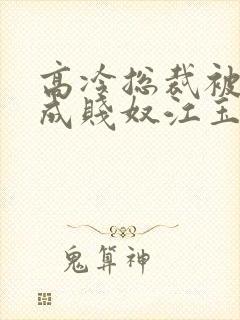 高冷总裁被
成贱奴江玉
鬼算神